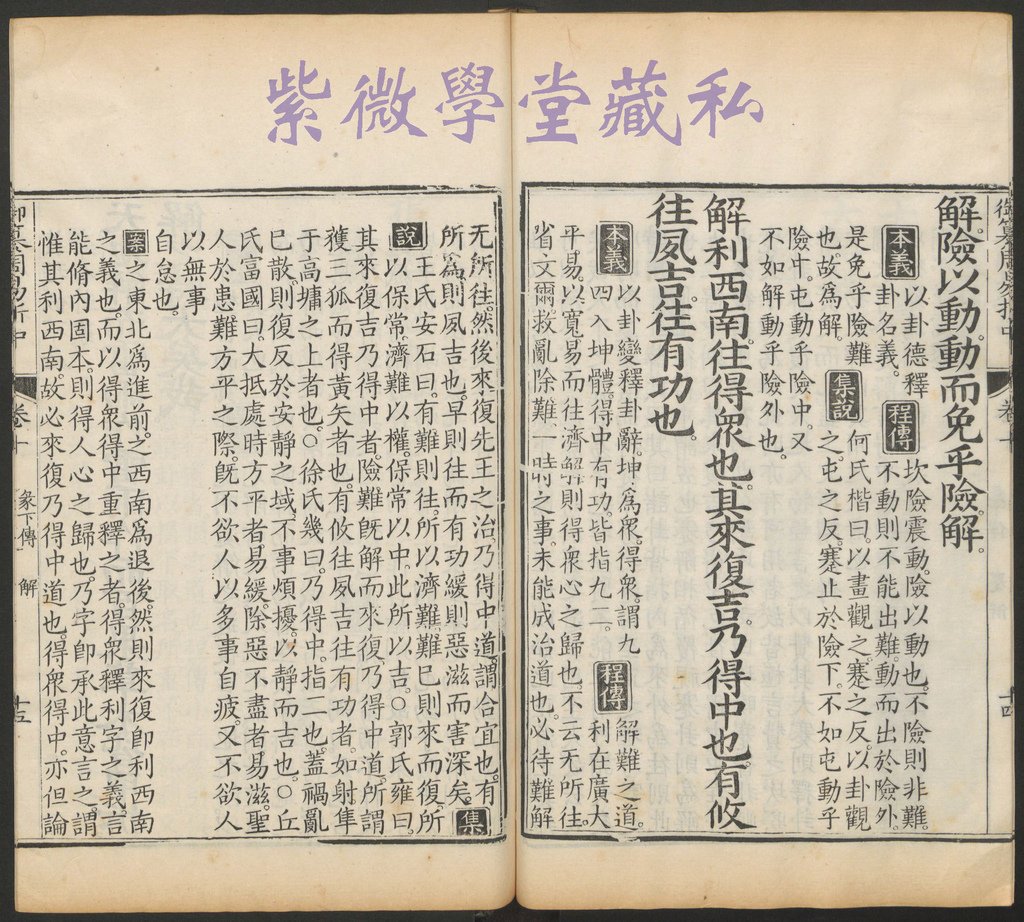 紫微學堂藏私
御纂周易折中 卷十 十四
解。險以動。動而免乎險解。
本義 以卦德釋
卦名義。
程傳 坎險震動。險以動也。不險則非難。
不動則不能出難。動而出於險外。
是免乎險難
也。故爲解。
集說 何氏楷曰以畫觀之。蹇之反。以卦觀
之。屯之反。蹇止於險下。不如屯動乎
險中。屯動乎險中。又
不如解動乎險外也。
解利西南。往得衆也。其來復吉。乃得中也。有攸
往夙吉。往有功也。
本義 以卦變釋卦辭。坤爲衆。得衆。謂九
四入坤體。得中有功。皆指九二。
程傳 解難之道。
利在廣大
平易。以寬易而往濟解。則得衆心之歸也。不云无所往。
省文爾。救亂除難。一時之事。未能成治道也。必待難解
无所往。然後來復先王之治。乃得中道。謂合宜也。有
所爲則夙吉也。早則往而有功。緩則惡滋而害深矣。
集
說 王氏安石曰。有難則往。所以濟難。難已則來而復。所
以保常。濟難以權。保常以中。此所以吉。○郭氏雍曰。
其來復吉乃得中者。險難旣解而來復。乃得中道。所謂
獲三狐而得黃矢者也。有攸往夙吉往有功者。如射隼
于高墉之上者也。○徐氏幾曰。乃得中。指二也。蓋禍亂
已散。則復反於安靜之域。不事煩擾。以靜而吉也。○丘
氏富國曰。大抵處時方平者易緩。除惡不盡者易滋。聖
人於患難方平之際。旣不欲人以多事自疲。又不欲人
以無事
自怠也。
案 之東北爲進前。之西南爲退後。然則來復即利西南
之義也。而以得衆得中重釋之者。得衆釋利字之義。言
能脩內固本。則得人心之歸也。乃字即承此意言之。謂
惟其利西南。故必來復乃得中道也。得衆得中。亦但論
御纂周易折中 卷十 彖下傳 解 十三